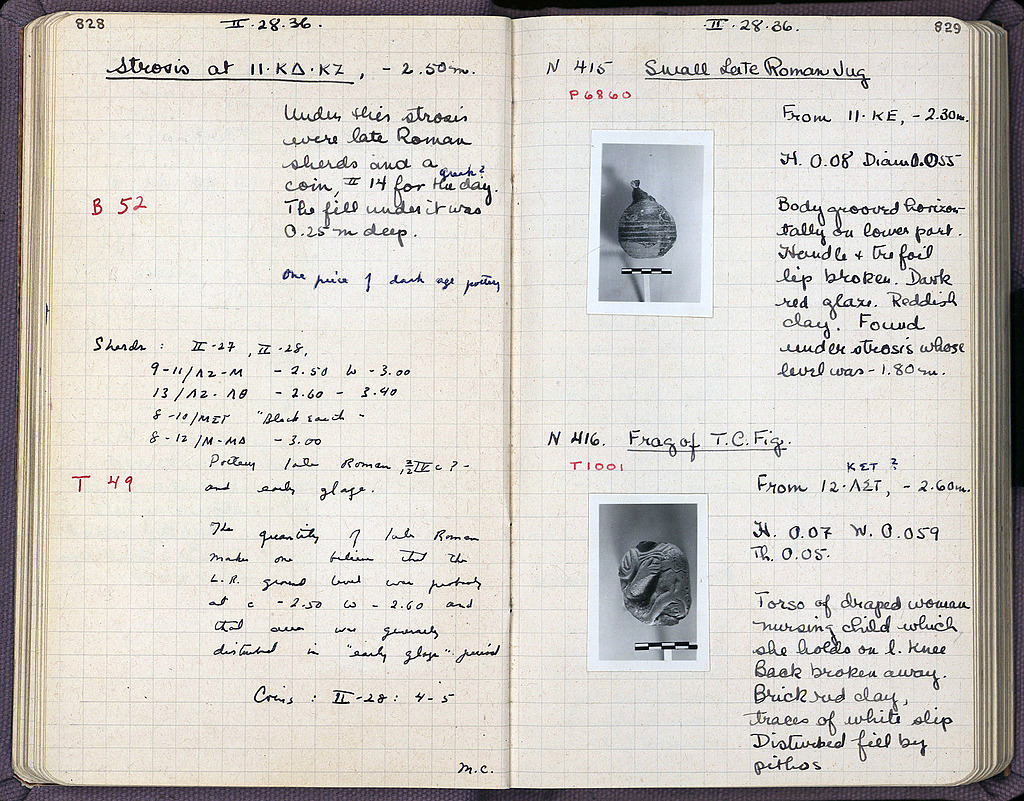 828
II·28·36.
Strosis at 11·ΚΔ·ΚΖ, - 2.50m.
Under this strosis
were late Roman
sherds and a
greek?
coin, II 14 for the day.
B 52
The fill under it was
0.25 m deep.
One piece of dark age pottery
Sherds : II-27, II-28,
9-11/ΛΖ-Μ - 2.50 to - 3.00
13/ΛΖ-ΛΘ - 2.60 - 3.40
8-10/ΜΣΤ "Black earth"
8-12/Μ-ΜΔ - 3.00
Pottery late Roman, IV c? -
T 49
and early glaze.
The quantity of late Roman
makes one believe that the
L.R. ground level was probably
at c -2.50 to -2.60 and
that area was generally
disturbed in "early glaze" period
Coins : II-28: 4-5
M.C.
II·28·36.
829
N 415 Small Late Roman Jug
P6860
From 11·ΚΕ, - 2.30m.
H. 0.08 Diam 0.055
Body grooved horizon-
tally on lower part.
Handle + trefoil
lip broken. Dark
red glaze. Reddish
clay. Found
under strosis whose
level was - 1.80m.
N 416. Frag of T.C. Fig.
T1001
ΚΣΤ ?
From 12·ΛΣΤ, - 2.60m.
H. 0.07 W. 0.059
Th. 0.05.
Torso of draped woman
nursing child which
she holds on l. knee
Back broken away.
Brick red clay,
traces of white slip
Disturbed fill by
pithos